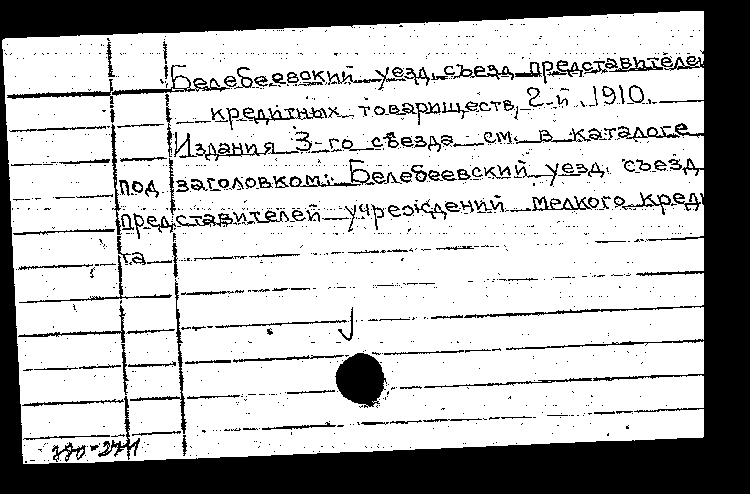 Белебеевский уезд, съезд представителей
кредитных товариществ, 2-й. 1910.
Издания 3-го съезда см. в каталоге
под заголовком: Белебеевский уезд. съезд
представителей учреждений мелкого креди
та